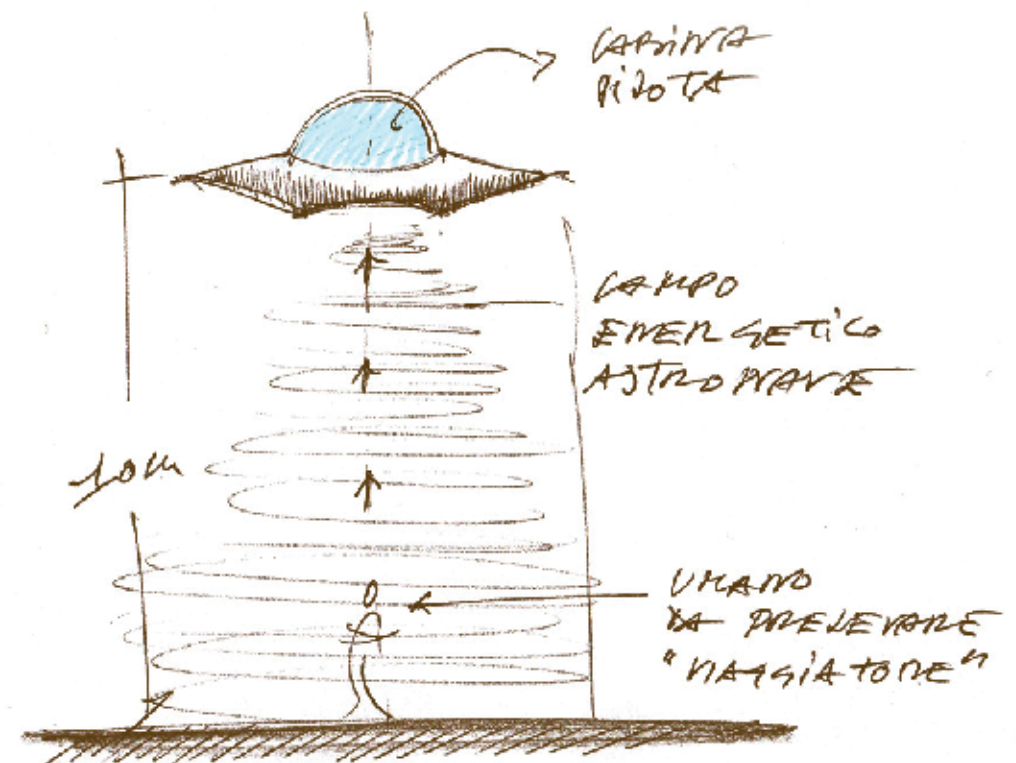 CABINA
PILOTA
CAMPO
ENERGETICO
ASTRONAVE
10m
UMANO
DA PRELEVARE
"VIAGGIATORE"